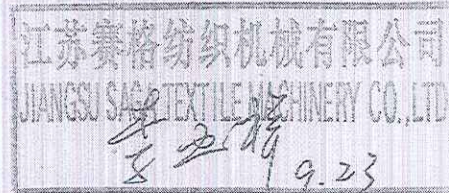 江苏赛格纺织机械有限公司
JIANGSU SAGA TEXTILE MACHINERY CO.,LTD
9.23